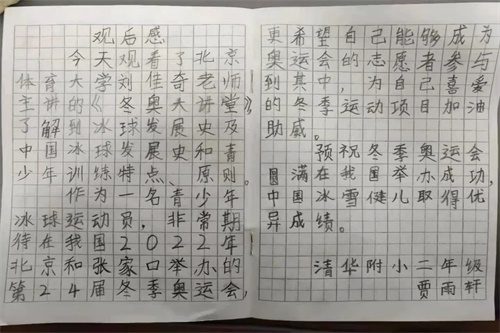 观后感
今天观看了北京
体育大学刘佳奇老师
主讲的《冬奥大讲堂》
了解到冰球发展史及
中国冰球发展史和青
少年训练特点、原则。
作为一名青少年
冰球运动员，非常期
待在我国2022年
北京和张家口举办的
第24届冬季奥运会，
更希望自己能够成为
奥运会的志愿者参与
到其中，为自己喜爱
的冬季运动项目加油
助威。
预祝冬季奥运会
圆满在我国举办成功，
中国冰雪健儿取得优
异成绩。
清华附小二年级
贾雨轩